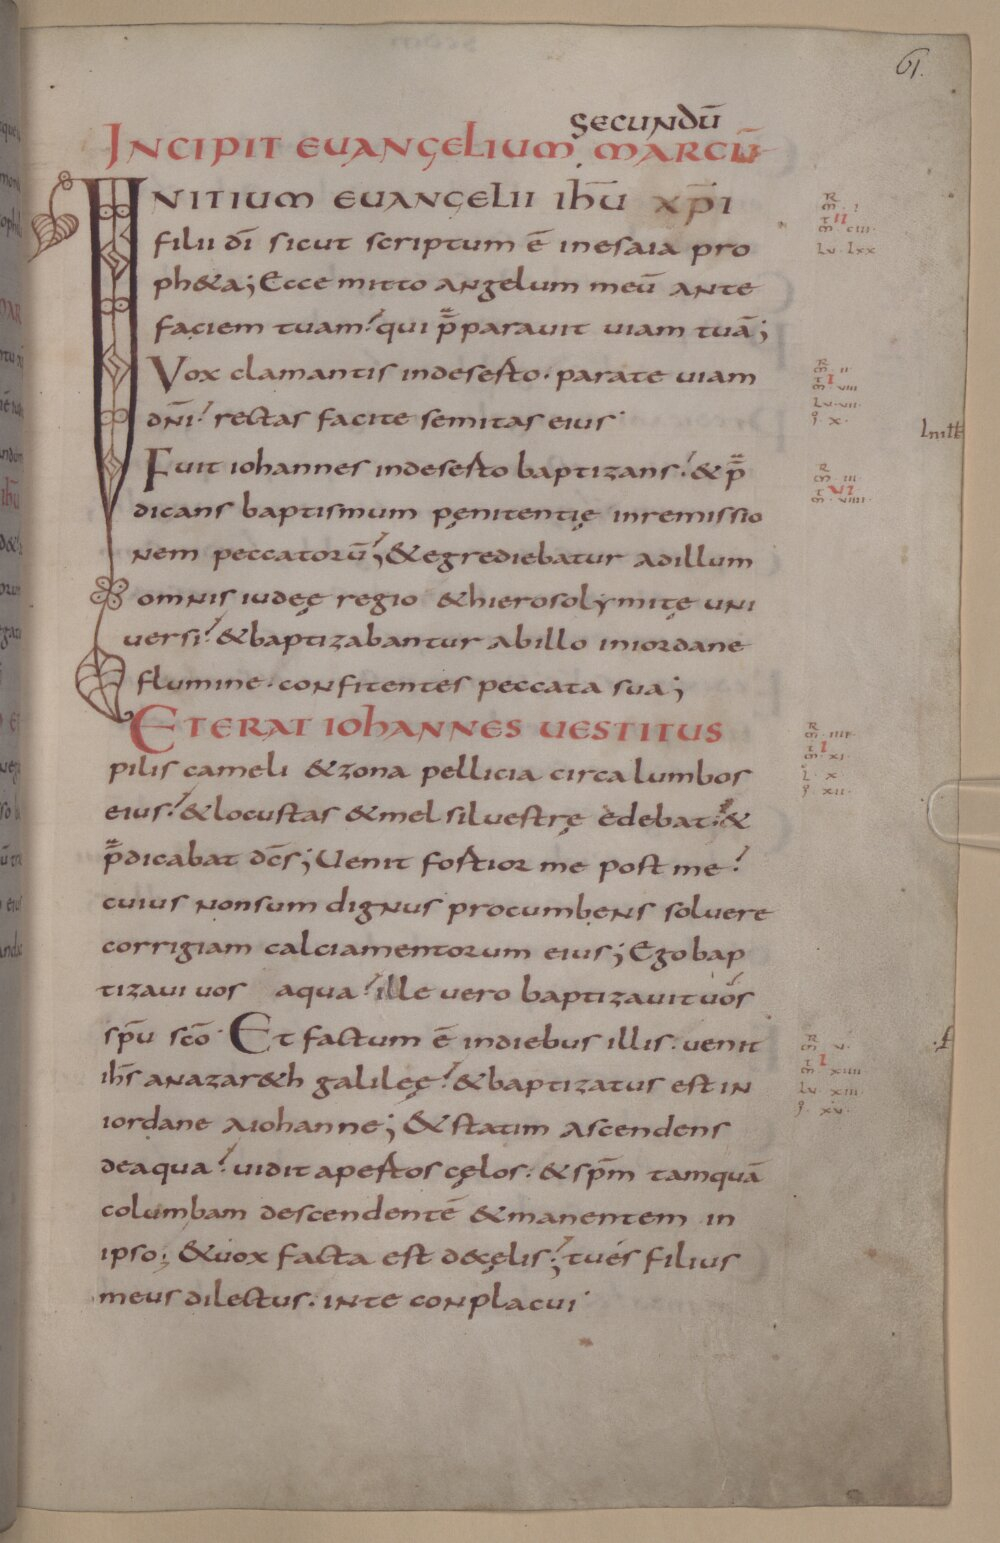 61.
secundū
INCIPIT EVANGELIUM MARCŪ
INITIUM EVANGELII IHŪ XPI
filii dī sicut scriptum ē inesaia pro
ph&a; Ecce mitto angelum meū ante
faciem tuam? qui p̄paravit viam tuā;
Vox clamantis indeserto. parate viam
dn̄i? rectas facite semitas eius.
Fuit iohannes indeserto baptizans? & p̄
dicans baptismum pęnitentię inremissio
nem peccatorū; & egrediebatur adillum
omnis iudeę regio & hierosolymitę uni
versi? & baptizabantur abillo iniordane
flumine. confitentes peccata sua;
ET ERAT IOHANNES VESTITUS
pilis cameli & zona pellicia circa lumbos
eius? & locustas & mel silvestrę edebat? &
p̄dicabat dēs; Venit fortior me post me?
cuius nonsum dignus procumbens solvere
corrigiam calciamentorum eius; Ego bap
tizavi vos aqua? ille vero baptizavit vos
sp̄u scō. Et factum ē indiebus illis. venit
ih̄s anazar&h galileę? & baptizatus est in
iordane aiohanne; & statim ascendens
deaqua? vidit apertos cęlos. & sp̄m tamquā
columbam descendentē & manentem in
ipso; & vox facta est decęlis? tu es filius
meus dilectus. inte conplacui.
R
m̄ . I
t II
m̄ . CIII.
Lv . Lxx
R
m̄ . II
t I
m̄ . VIII
Lv . VII.
g . x.
Initt
R
m̄ . III.
t VI
m̄ . VIIII.
R
m̄ . IIII.
t I
m̄ . XI.
L . x
g . XII.
R
m̄ . v.
t I
m̄ . XIIII
Lv . XIII
g . xv.